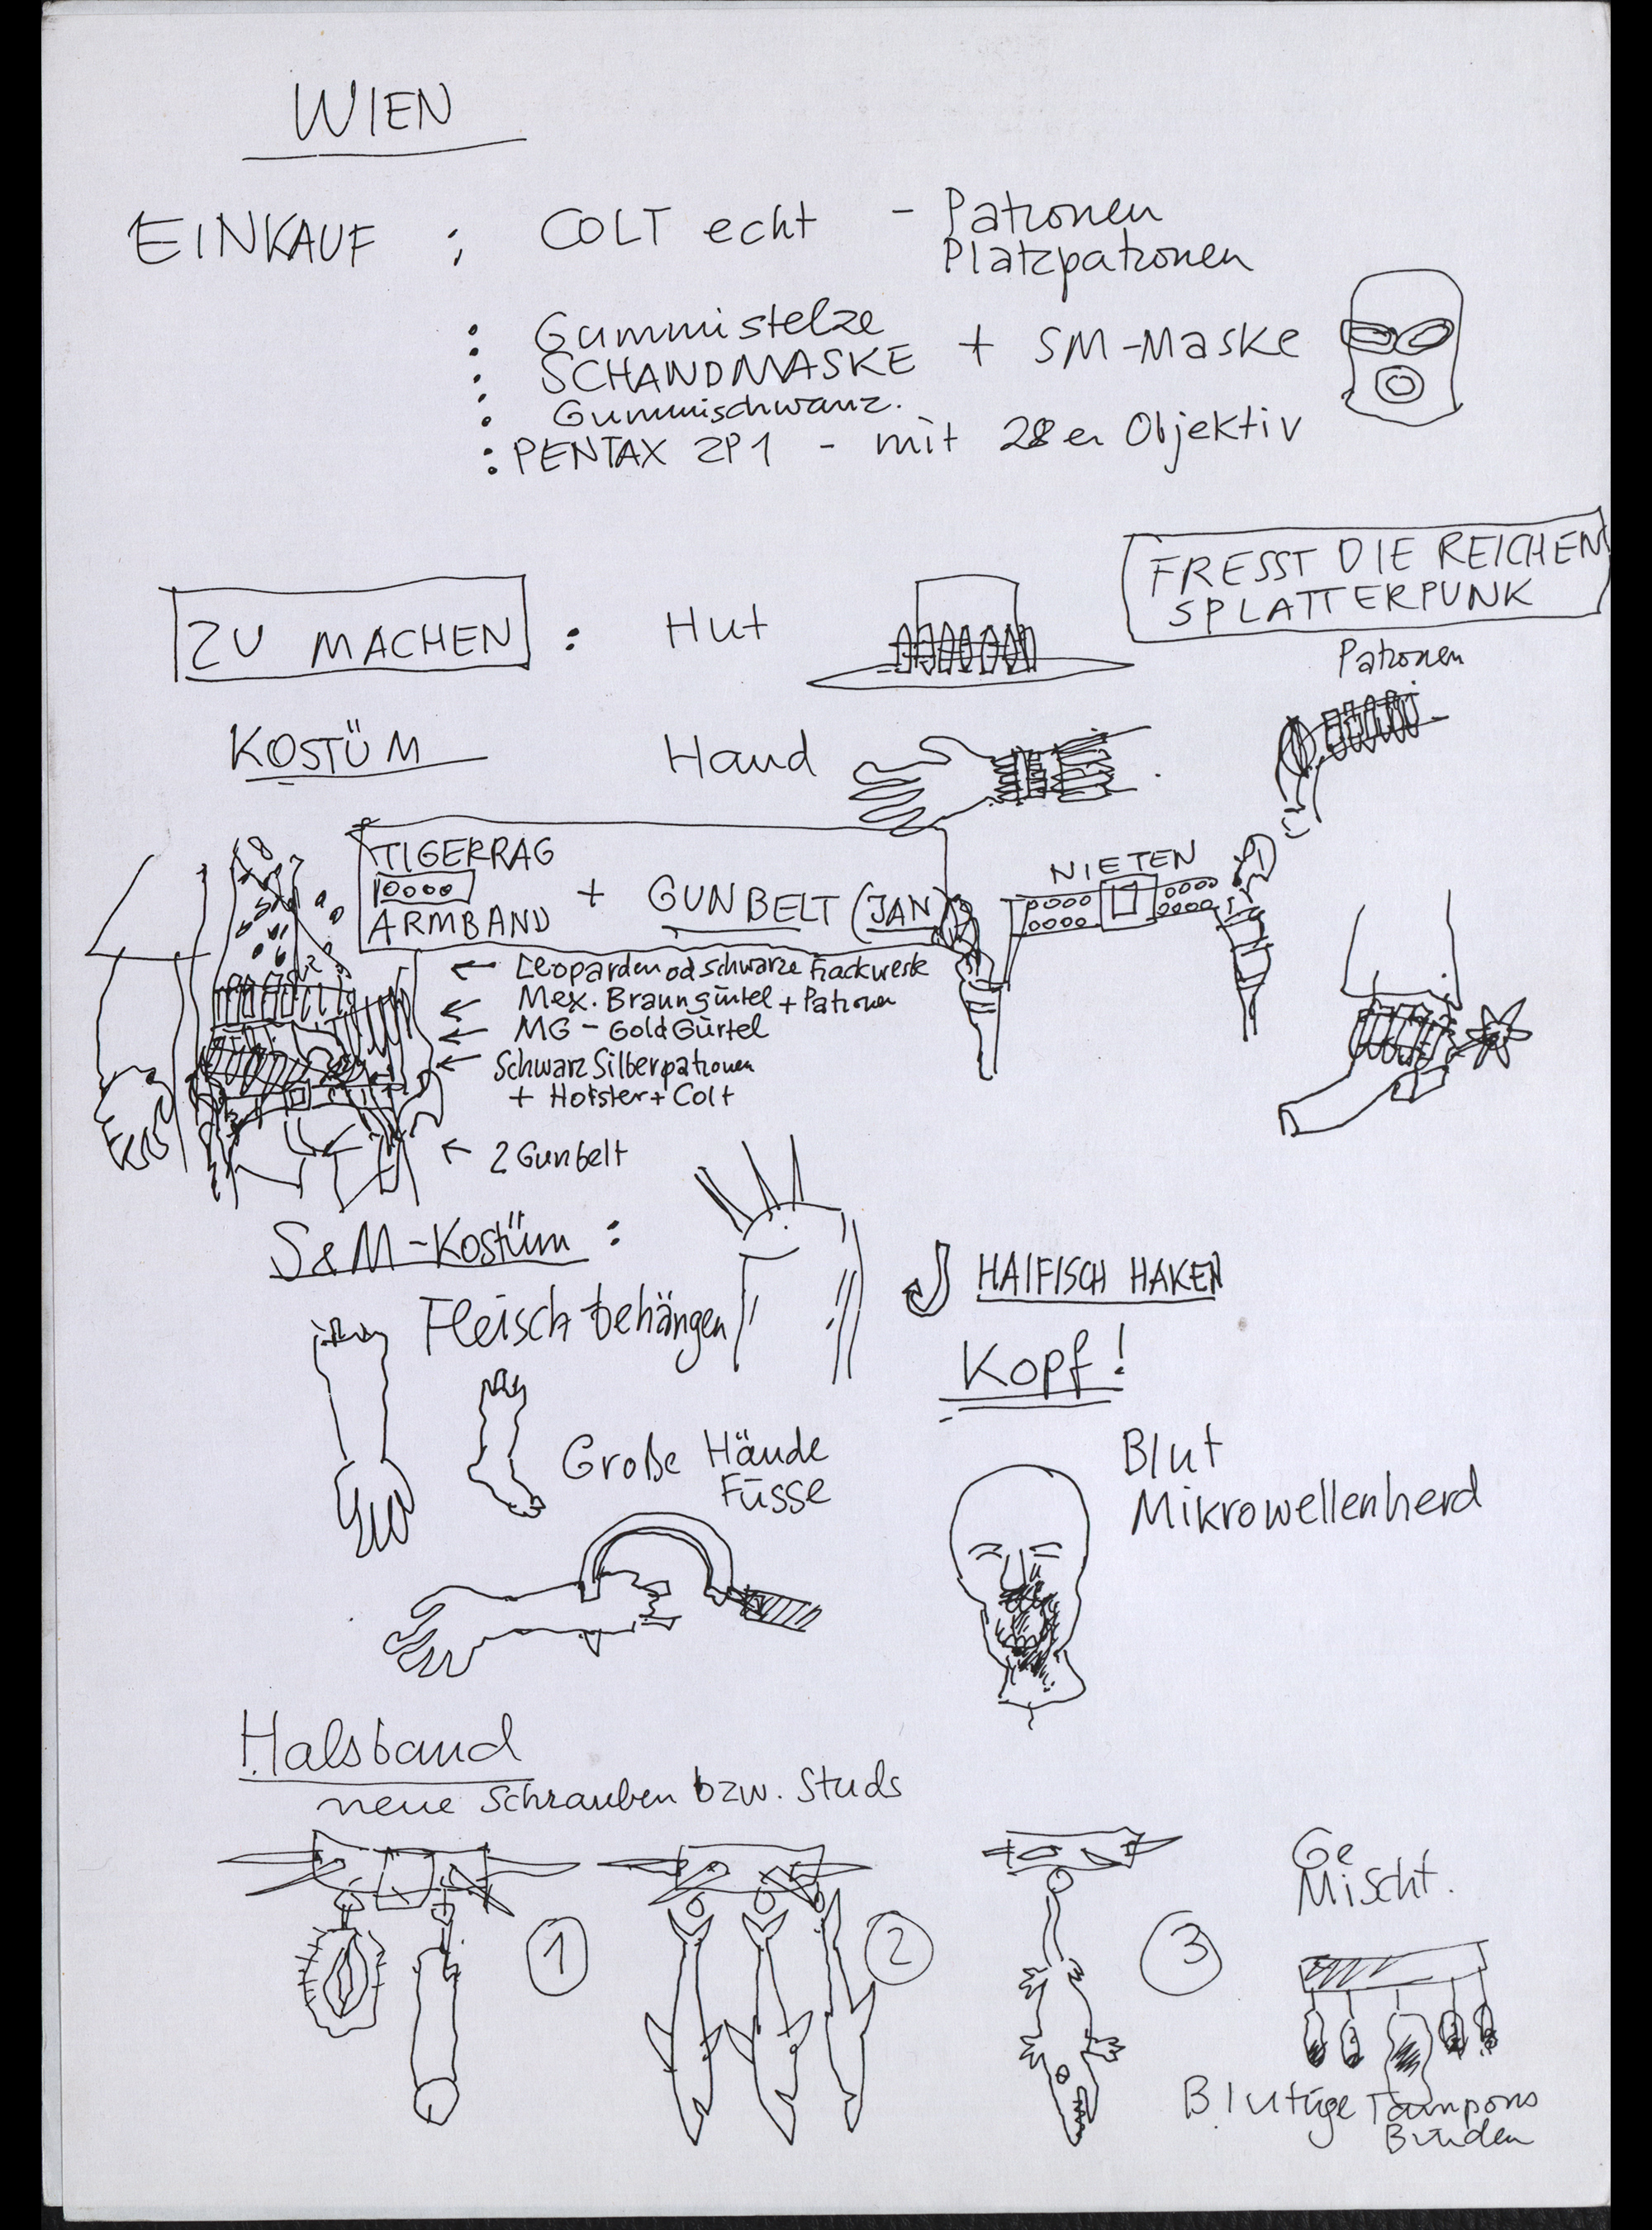 WIEN
EINKAUF : COLT echt - Patronen
Platzpatronen
: Gummistelze
SCHANDMASKE + SM-Maske
Gummischwanz.
: PENTAX ZP1 - mit 28er Objektiv
FRESST DIE REICHEN
SPLATTERPUNK
ZU MACHEN : Hut
Patronen
KOSTÜM Hand
TIGERRAG
ARMBAND + GUNBELT (JAN)
NIETEN
← Leoparden od schwarze
← Mex. Braungürtel + Patronen
← MG - Gold Gürtel
← Schwarz Silberpatronen
+ Holster + Colt
← 2 Gunbelt
S&M-Kostüm :
HAIFISCH HAKEN
Fleisch behängen
Kopf!
Große Hände
Füsse
Blut
Mikrowellenherd
Halsband
neue Schrauben bzw. Studs
Ge
Mischt.
1 2 3
Blutige Tampons
Binden